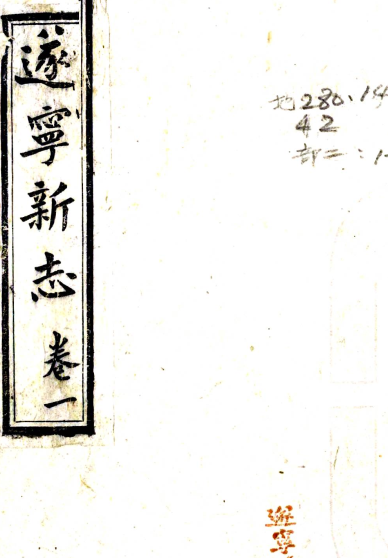 遂寧新志
卷一
地280.14
42
部二:1-
遂寧